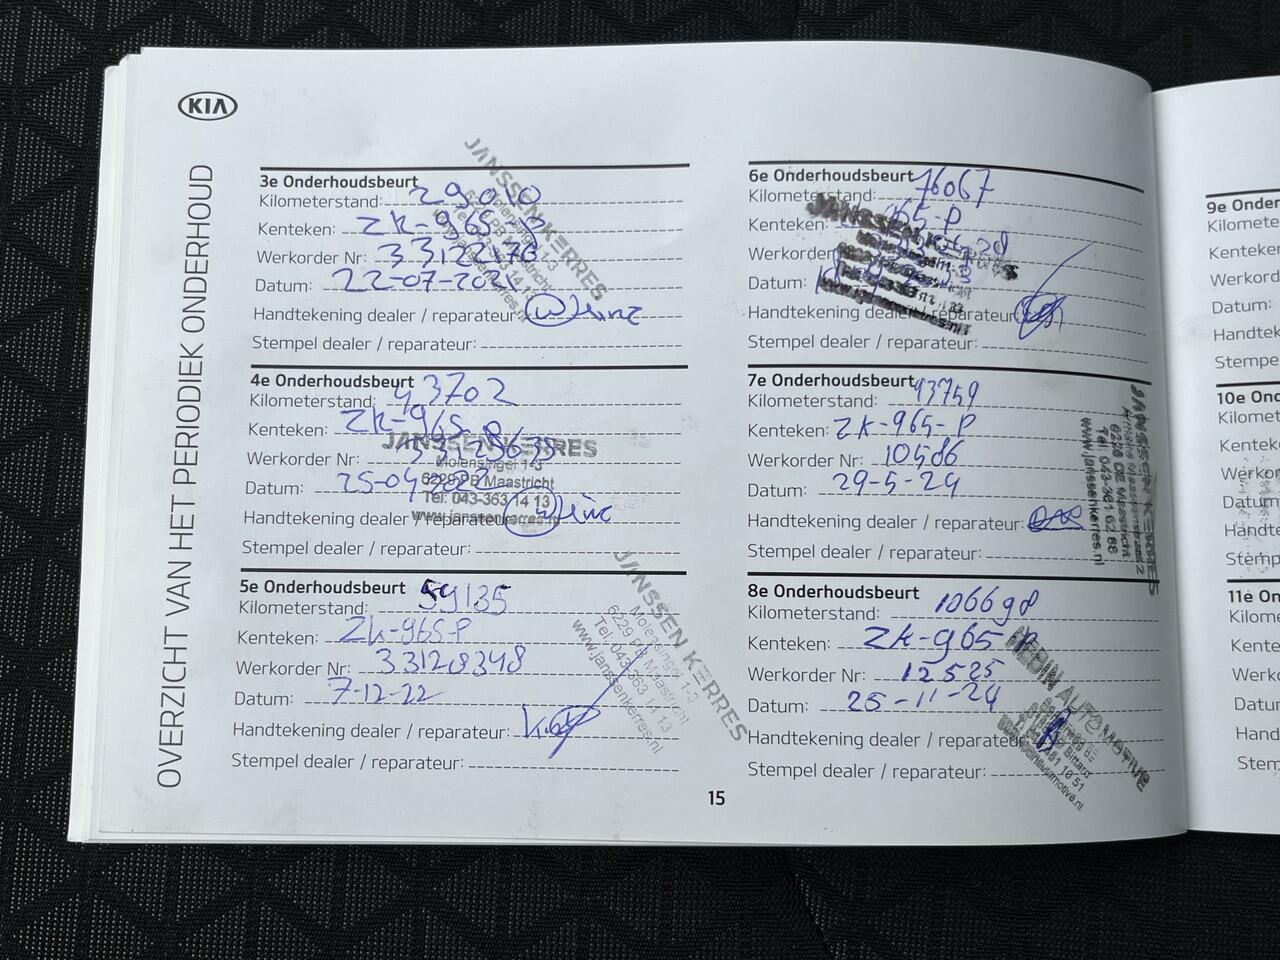 KIA
OVERZICHT VAN HET PERIODIEK ONDERHOUD
3e Onderhoudsbeurt
Kilometerstand: 29010
Kenteken: ZK-965-P
Werkorder Nr: 33122478
Datum: 22-07-2021
Handtekening dealer / reparateur:
Stempel dealer / reparateur:
JANSSEN KERRES
Molensingel 1-3
6229 PB Maastricht
Tel: 043-363 14 13
www.janssenkerres.nl
4e Onderhoudsbeurt
Kilometerstand: 43702
Kenteken: ZK-965-P
Werkorder Nr: 33125635
Datum: 25-04-2022
Handtekening dealer / reparateur:
Stempel dealer / reparateur:
JANSSEN KERRES
Molensingel 1-3
6229 PB Maastricht
Tel: 043-363 14 13
www.janssenkerres.nl
5e Onderhoudsbeurt
Kilometerstand: 59135
Kenteken: ZK-965-P
Werkorder Nr: 33128348
Datum: 7-12-22
Handtekening dealer / reparateur:
Stempel dealer / reparateur:
JANSSEN KERRES
Molensingel 1-3
6229 PB Maastricht
Tel: 043-363 14 13
www.janssenkerres.nl
6e Onderhoudsbeurt
Kilometerstand: 76067
Kenteken: 965-P
Werkorder
Datum:
Handtekening dealer / reparateur:
Stempel dealer / reparateur:
JANSSEN KERRES
www.janssenkerres.nl
7e Onderhoudsbeurt
Kilometerstand: 93759
Kenteken: ZK-965-P
Werkorder Nr: 10586
Datum: 29-5-24
Handtekening dealer / reparateur:
Stempel dealer / reparateur:
JANSSEN KERRES
6228 DE Maastricht
Tel: 043-361 62 88
www.janssenkerres.nl
8e Onderhoudsbeurt
Kilometerstand: 106698
Kenteken: ZK-965 P
Werkorder Nr: 12525
Datum: 25-11-24
Handtekening dealer / reparateur:
Stempel dealer / reparateur:
HEDIN AUTOMOTIVE
Sittard
15
9e Onder
Kilomete
Kenteken
Werkord
Datum:
Handtek
Stempel
10e Ond
Kilomet
Kentek
Werko
Datum
Handt
Stemp
11e On
Kilom
Kente
Werk
Datur
Hand
Stem